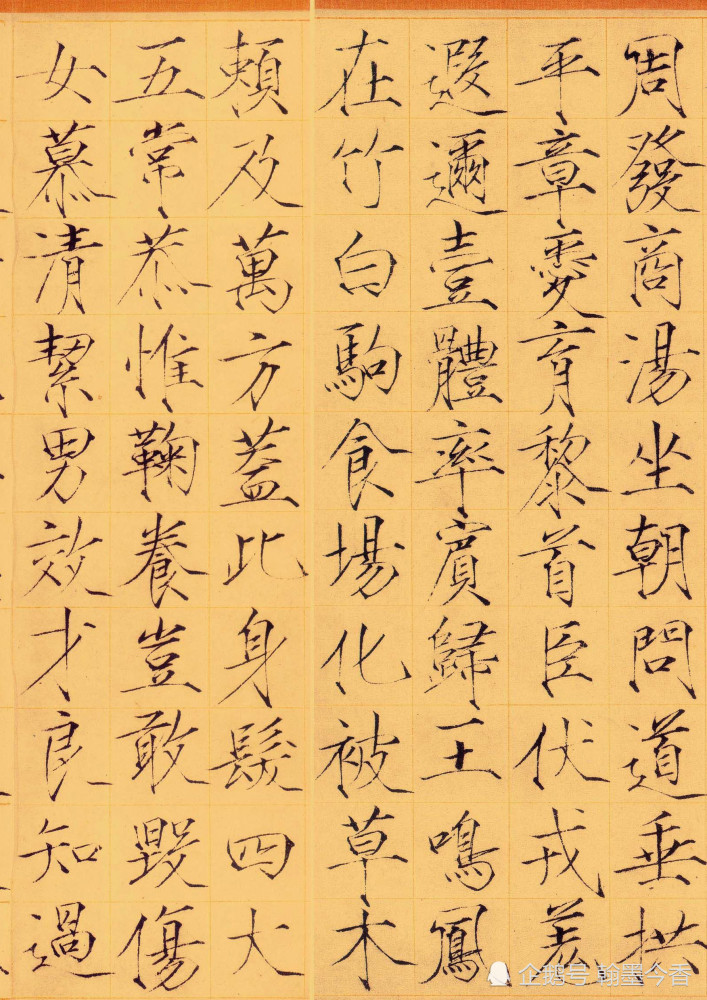 周發商湯坐朝問道垂拱
平章愛育黎首臣伏戎羌
遐邇壹體率賓歸王鳴鳳
在竹白駒食場化被草木
賴及萬方蓋此身髮四大
五常恭惟鞠養豈敢毀傷
女慕清絜男效才良知過
企鹅号 翰墨今香